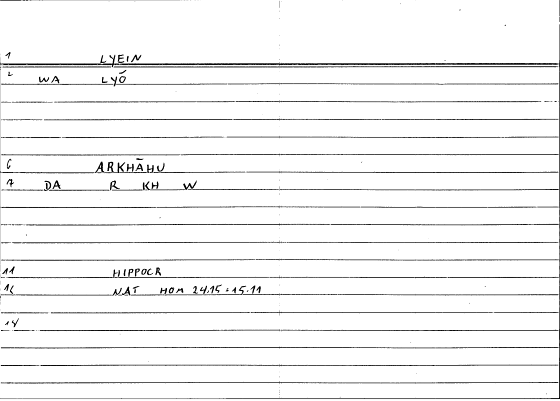 1 LYEIN
2 WA LYŌ
6 ARKHĀHU
7 DA R KH W
11 HIPPOCR
12 NAT HOM 24.15 = 15.11
14